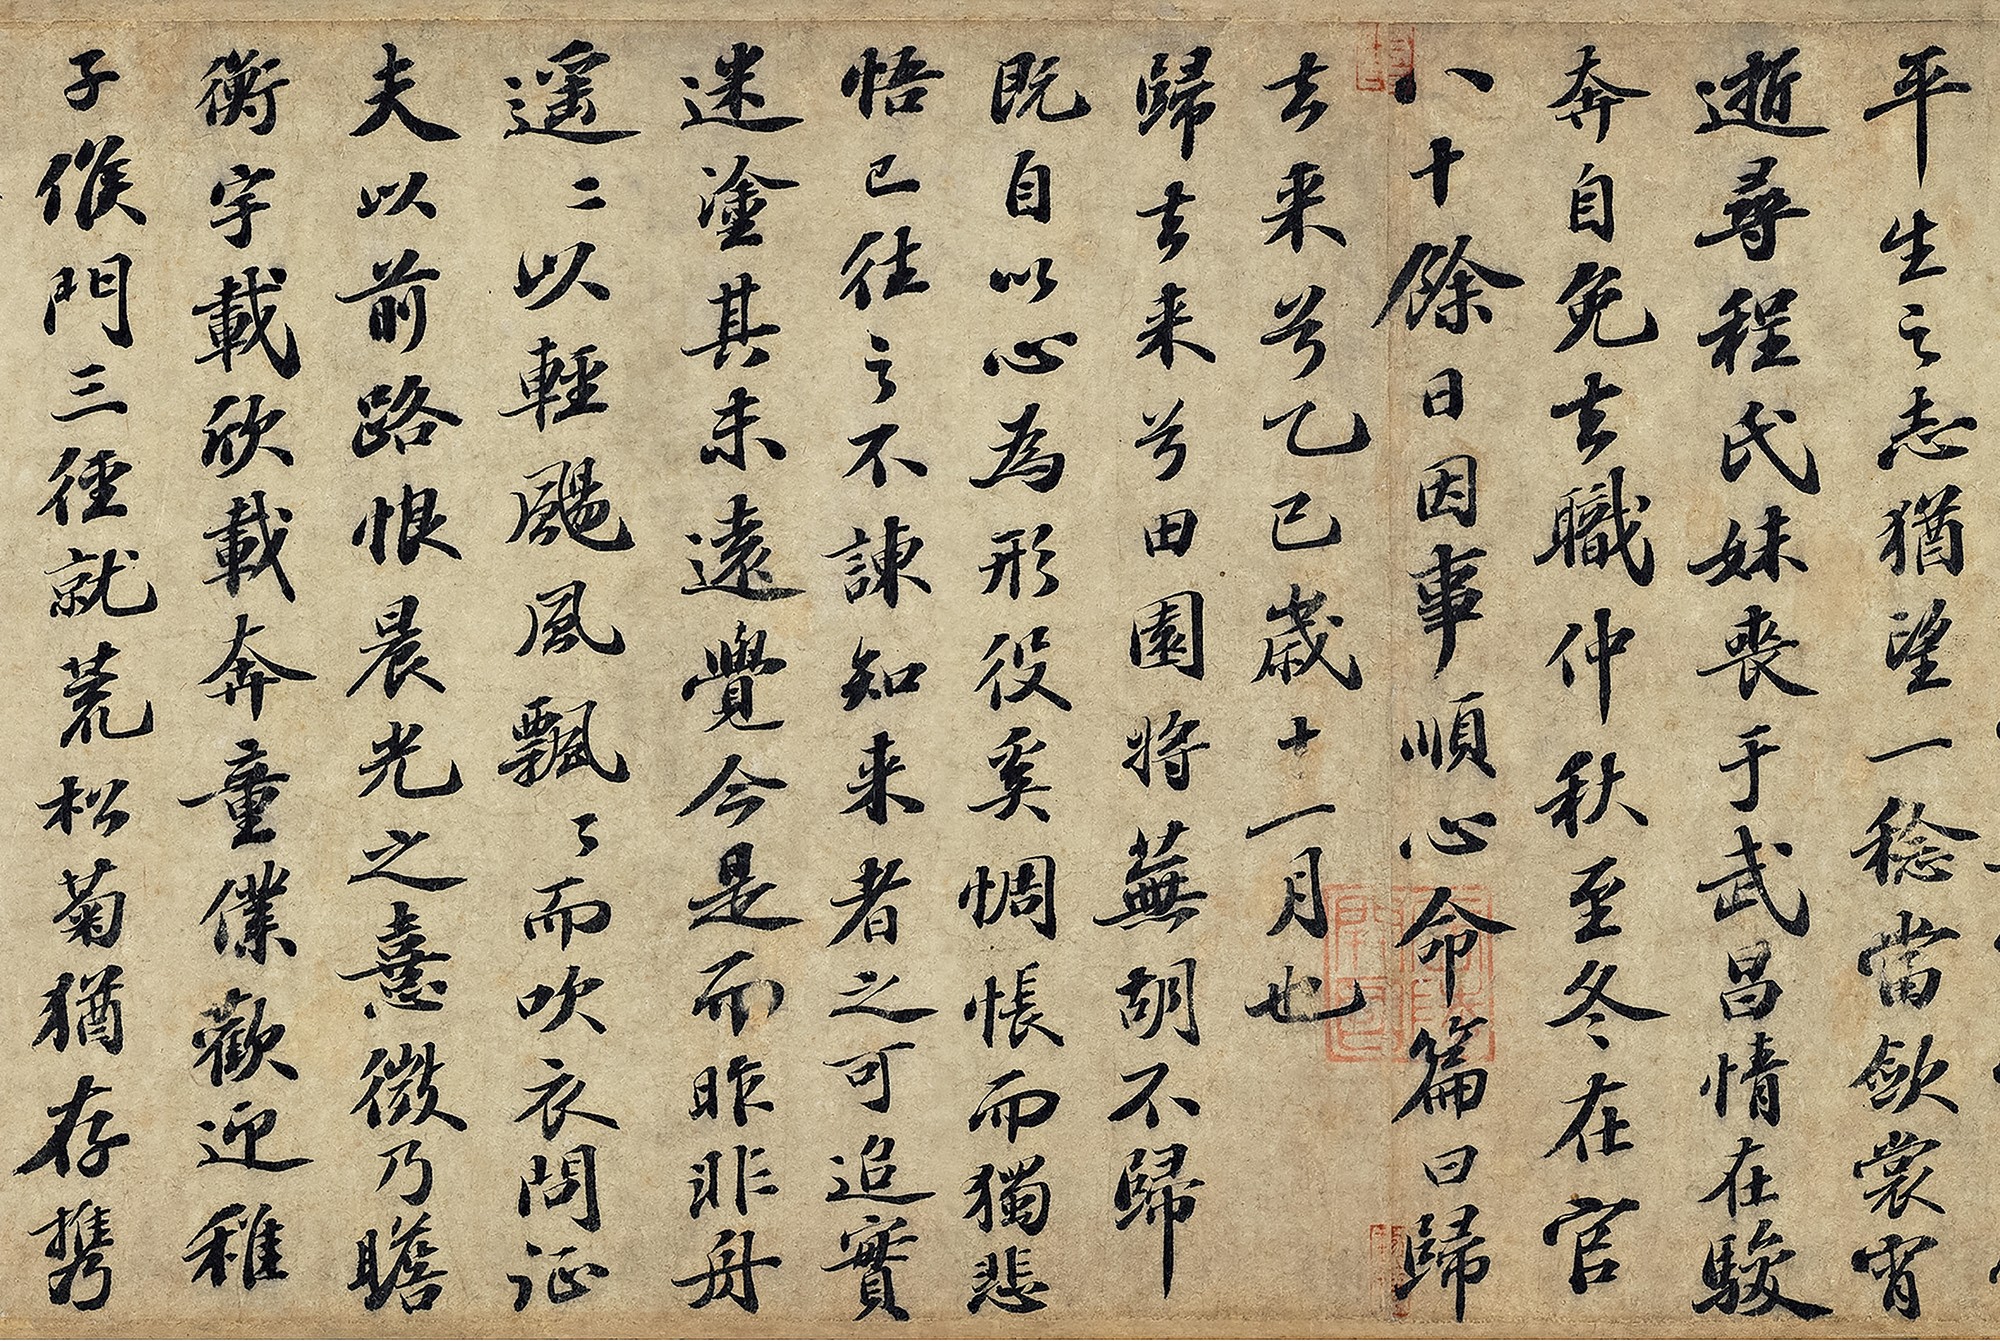 平生之志猶望一稔當斂裳宵
逝尋程氏妹喪于武昌情在駿
奔自免去職仲秋至冬在官
八十餘日因事順心命篇曰歸
去来兮乙巳歲十一月也
歸去来兮田園將蕪胡不歸
既自以心為形役奚惆悵而獨悲
悟已往之不諫知来者之可追實
迷塗其未遠覺今是而昨非舟
遥〻以輕颺風飄〻而吹衣問征
夫以前路恨晨光之熹微乃瞻
衡宇載欣載奔童僕歡迎稚
子候門三徑就荒松菊猶存携